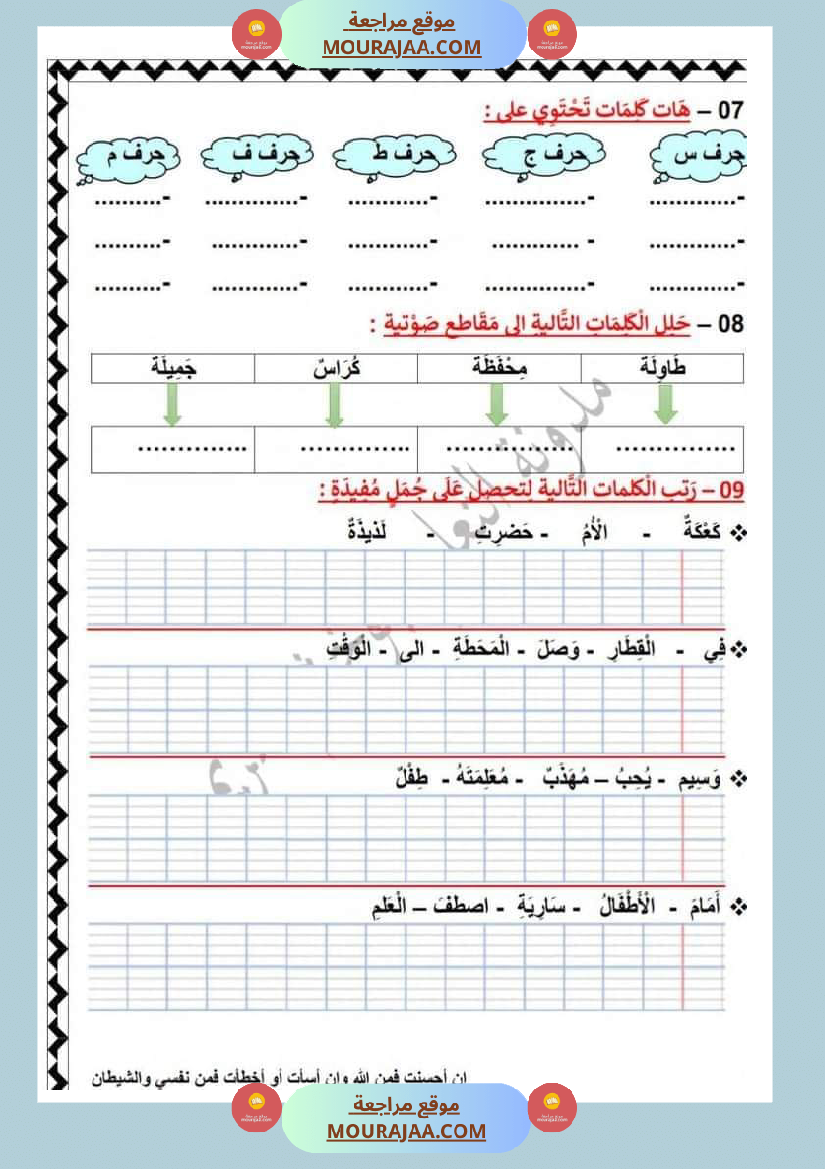 موقع مراجعة
MOURAJAA.COM
07 – هَات كَلِمَات تَحْتَوِي على :
حرف س حرف ج حرف ط حرف ف حرف م
-............. -............... -............ -.............. -..........
-............. - ............. -............ -............. -..........
-............. -............... -............ -............. -..........
08 – حَلِلِ الْكَلِمَاتِ التَّاليةِ الى مَقَاطع صَوْتية :
طَاوِلَة مِحْفَظَة كُرَاسٌ جَمِيلَة
............... ................ .............. ..............
09 – رَتبِ الْكلمات التَّالية لِتحصل عَلَى جُمَلٍ مُفِيدَةٍ :
❖ كَعْكَةٌ - الْأُمُ - حَضرِتِ - لَذيذَةٌ
❖ فِي - الْقِطَارِ - وَصَلَ - الْمَحَطَةِ - الى - الوَقْتِ
❖ وَسِيم - يُحِبُ – مُهَذَبٌ - مُعَلِمَتَهُ - طِفْلٌ
❖ أَمَامَ - الْأَطْفَالُ - سَارِيَةِ - اصطفَ – الْعَلَمِ
ان أحسنت فمن الله وان أسأت أو أخطأت فمن نفسي والشيطان
موقع مراجعة
MOURAJAA.COM